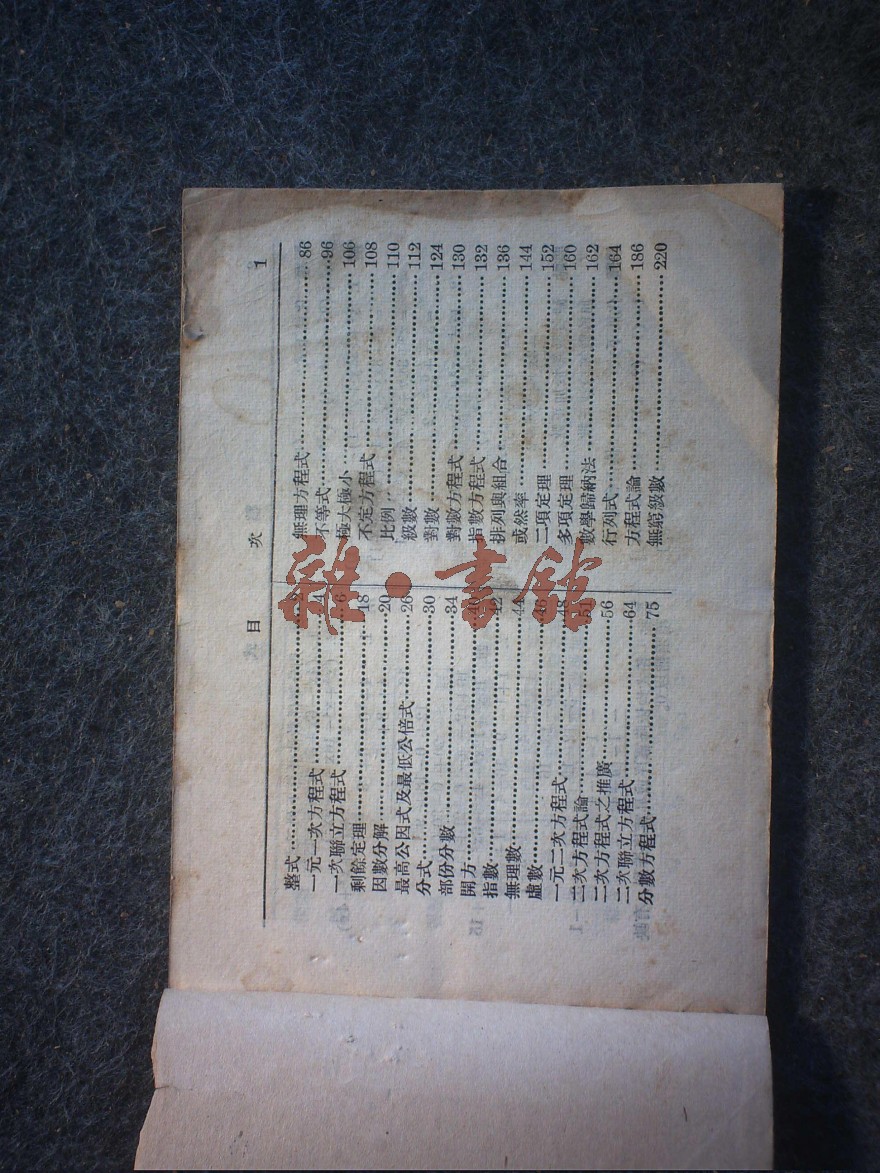 目 次 1
整式……2
一元一次方程式……4
一次聯立方程式……6
剩餘定理……18
因數分解……20
最高公因式及最低公倍式……26
分式……30
部份分數……34
開方……40
指數……42
無理數……44
虛數……46
一元二次方程式……48
二次方程式論……51
二次方程式之推廣……56
二次聯立方程式……64
分數方程式……75
無理方程式……86
不等式……96
極大極小……106
不定方程式……108
比例……110
級數……112
對數……124
對數方程式……130
指數方程式……132
排列與組合……136
或然率……144
二項定理……152
多項定理……160
數學歸納法……162
行列式……164
方程式論……186
無窮級數……220
雜·書館